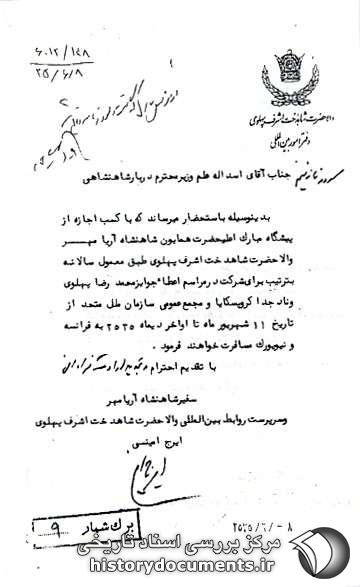 ۶۰۱۲/۱۴۸
۳۵/۶/۸
والاحضرت شاهدخت اشرف پهلوی
دفتر امور بین‌المللی
جناب آقای اسداله علم وزیر محترم دربار شاهنشاهی
بدینوسیله باستحضار میرساند که با کسب اجازه از
پیشگاه مبارک اعلیحضرت همایون شاهنشاه آریا مهر
والاحضرت شاهدخت اشرف پهلوی طبق معمول سالانه
بترتیب برای شرکت در مراسم اعطاء جوایز محمد رضا پهلوی
وناد جدا کروپسکایا و مجمع عمومی سازمان ملل متحد از
تاریخ ۱۱ شهریور ماه تا اواخر دیماه ۲۵۳۵ به فرانسه
و نیویورک مسافرت خواهند فرمود.
با تقدیم احترام و تجدید ارادت
سفیر شاهنشاه آریامهر
وسرپرست روابط بین‌المللی والاحضرت شاهدخت اشرف پهلوی
ایرج امینی
برگ شمار ۹
۲۵۳۵/۶/۰۸
مرکز بررسی اسناد تاریخی
historydocuments.ir